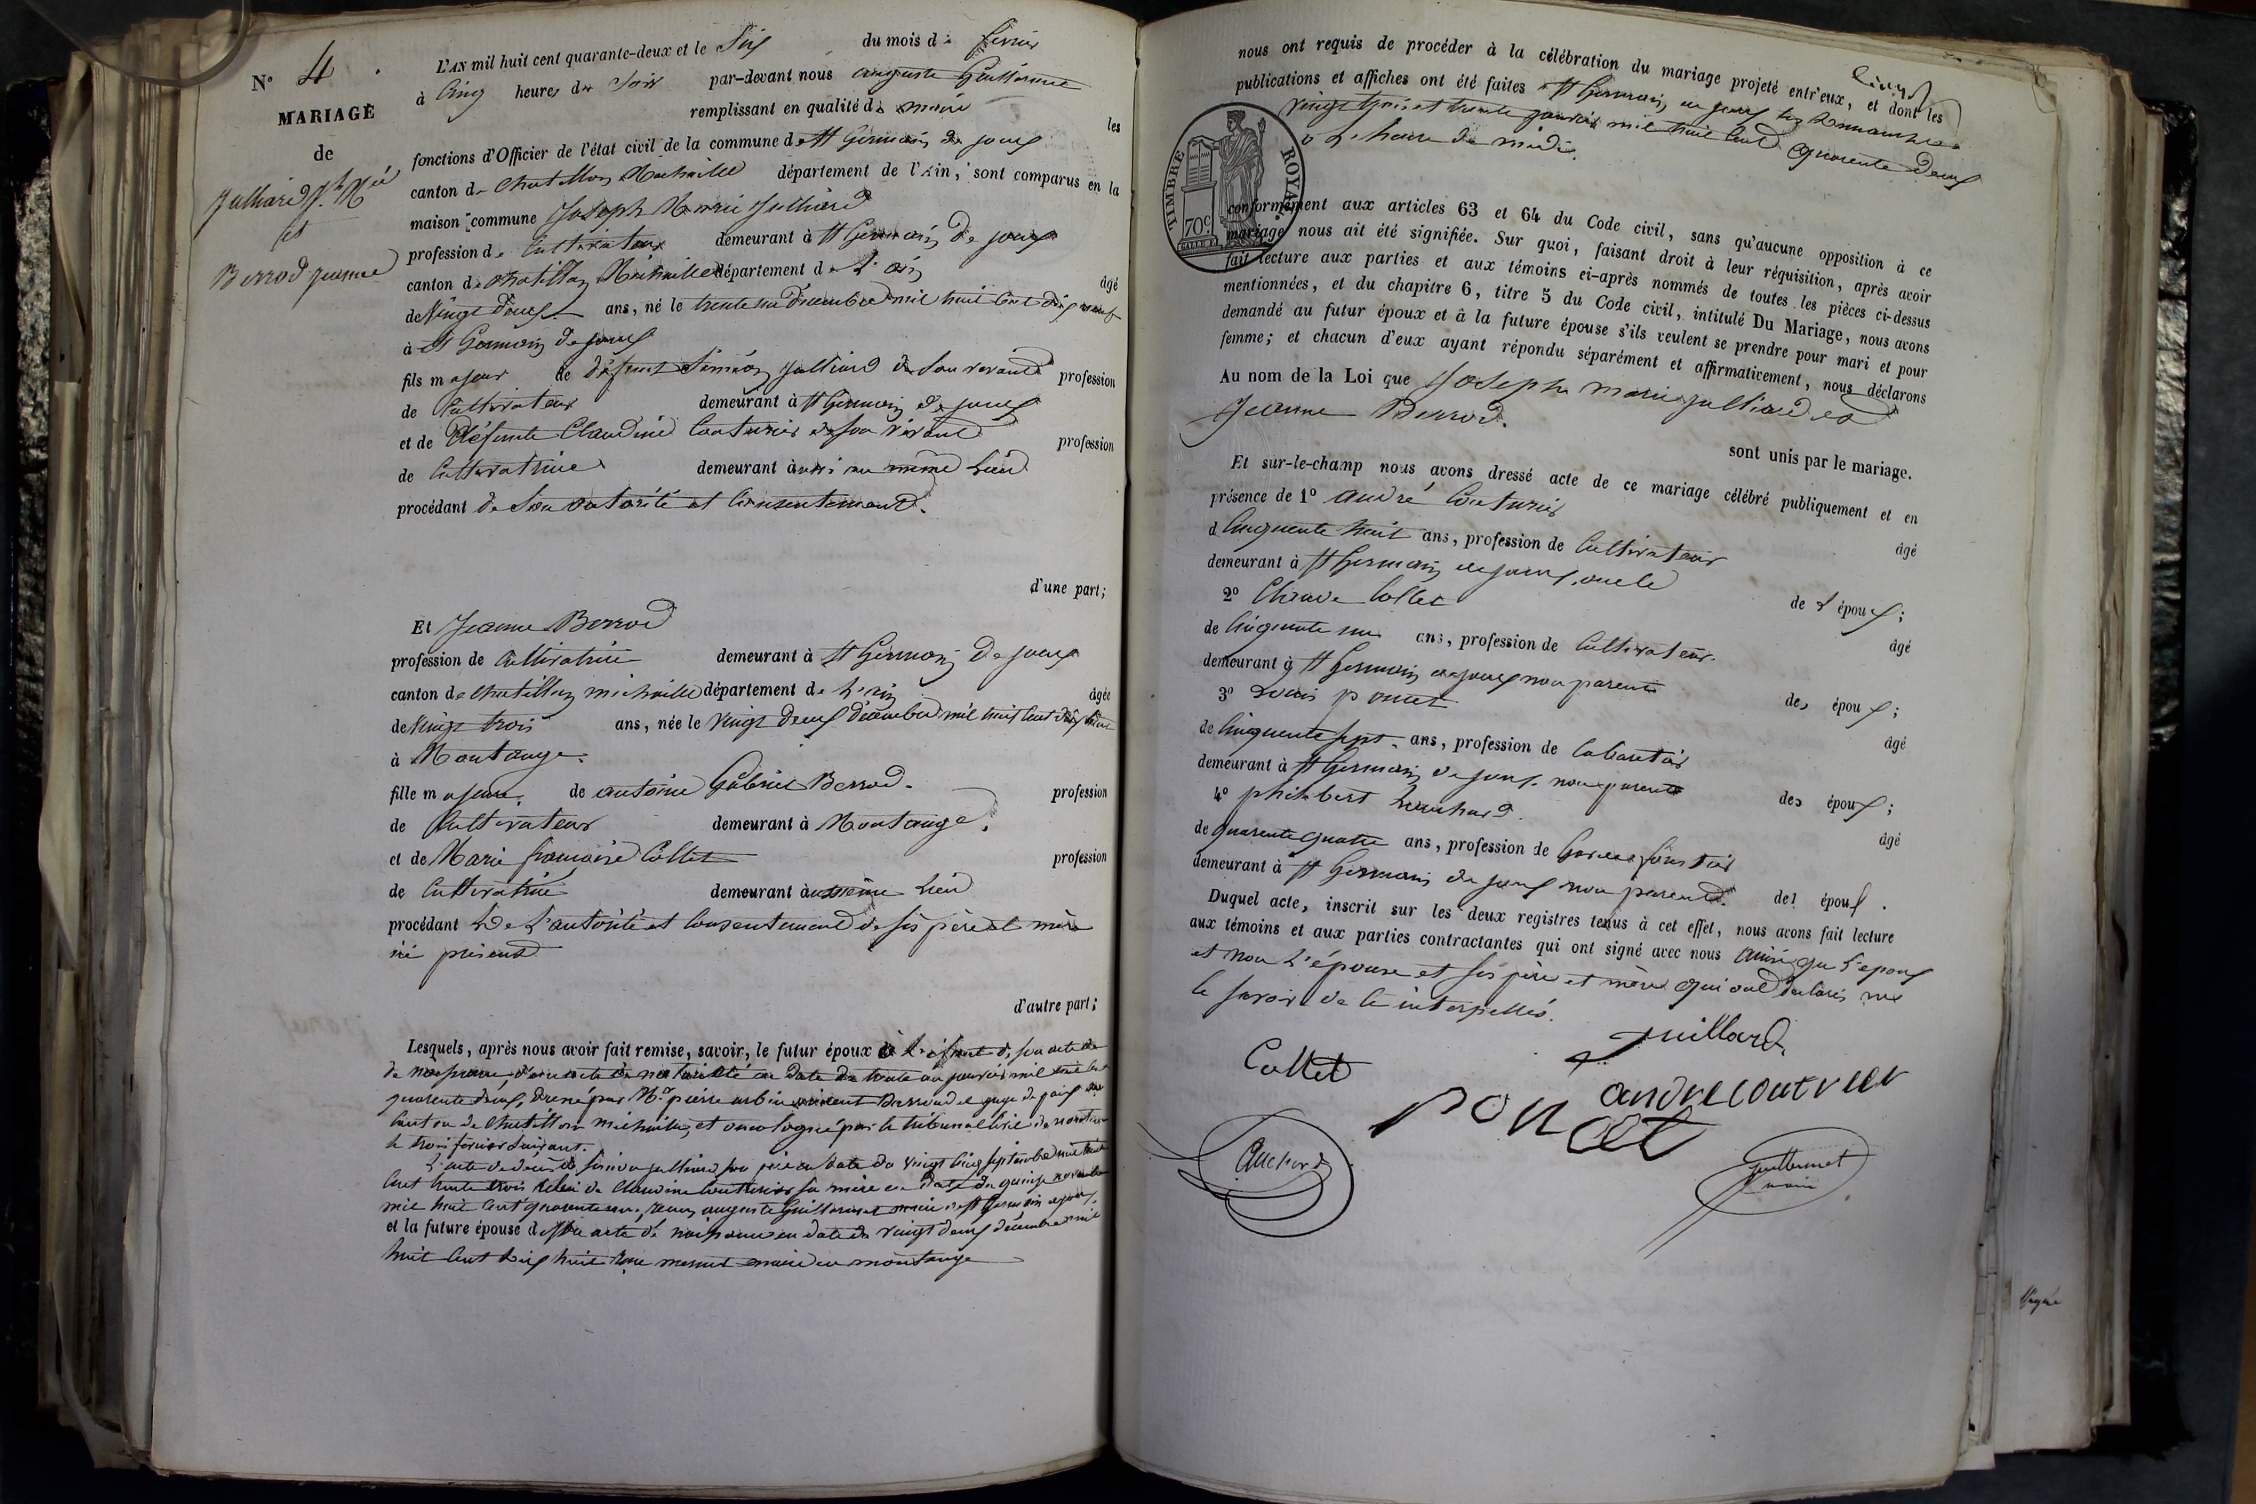 N° 4
MARIAGE
de
Julliard Jh Mie
et
Berrod jeanne
L'AN mil huit cent quarante-deux et le Six du mois de février
à Cinq heures du Soir par-devant nous auguste Guillermet
remplissant en qualité de maire les
fonctions d'Officier de l'état civil de la commune de St Germain de joux
canton de Chatillon Michaille département de l'Ain, sont comparus en la
maison commune Joseph Marie Julliard
profession de Cultivateur demeurant à St Germain de joux
canton de Chatillon Michaille département de L'ain âgé
de Vingt deux ans, né le trente un décembre mil huit Cent dix neuf
à St Germain de joux
fils majeur de défunt Siméon Julliard de Son vivant profession
de Cultivateur demeurant à St Germain de joux
et de défunte Claudine Couturier de son vivant profession
de Cultivatrice demeurant à au même Lieu
procédant de Son autorité et Consentement.
d'une part;
Et Jeanne Berrod
profession de Cultivatrice demeurant à St Germain de joux
canton de Chatillon michaille département de L'ain âgée
de Vingt trois ans, née le vingt deux décembre mil huit Cent dix huit
à Montange.
fille majeure, de antoine Gabriel Berrod. profession
de Cultivateur demeurant à Montange.
et de Marie françoise Collet profession
de Cultivatrice demeurant à au même Lieu
procédant De L'autorité et Consentement de ses père et mère
ici présent
d'autre part;
Lesquels, après nous avoir fait remise, savoir, le futur époux de son acte de
de naissance, d'un acte de notoriété en date du trente un janvier mil huit Cent
quarante deux, par Mr pierre juge de paix du
Canton de Chatillon michaille, et omologué par le tribunal Civil de nantua
le trois février Suivant.
L'acte de décès de Siméon julliard son père en date du vingt Cinq septembre mil huit
Cent trente trois Celui de Claudine Couturier sa mère en date du quinze novembre
mil huit Cent quarante un, auguste Guillermet maire St Germain de joux.
et la future épouse de son acte de naissance en date du vingt deux décembre mil
huit Cent dix huit maire de montange
nous ont requis de procéder à la célébration du mariage projeté entr'eux, et dont les
publications et affiches ont été faites à St Germain de joux les Dimanches
vingt trois et trente janvier mil huit Cent quarante deux
à L'heure de midi.
TIMBRE ROYAL
70 c.
conformément aux articles 63 et 64 du Code civil, sans qu'aucune opposition à ce
mariage nous ait été signifiée. Sur quoi, faisant droit à leur réquisition, après avoir
fait lecture aux parties et aux témoins ci-après nommés de toutes les pièces ci-dessus
mentionnées, et du chapitre 6, titre 5 du Code civil, intitulé Du Mariage, nous avons
demandé au futur époux et à la future épouse s'ils veulent se prendre pour mari et pour
femme; et chacun d'eux ayant répondu séparément et affirmativement, nous déclarons
Au nom de la Loi que Joseph marie julliard et
Jeanne Berrod.
sont unis par le mariage.
Et sur-le-champ nous avons dressé acte de ce mariage célébré publiquement et en
présence de 1° andré Couturier âgé
de Cinquante huit ans, profession de Cultivateur
demeurant à St Germain de joux, oncle de l'époux;
2° Claude Collet âgé
de Cinquante un ans, profession de Cultivateur.
demeurant à St Germain de joux non parent des époux;
3° Louis poncet âgé
de Cinquante sept ans, profession de Cabaretier
demeurant à St Germain de joux non parent des époux;
4° philibert âgé
de quarante quatre ans, profession de Garde forestier
demeurant à St Germain de joux non parent des époux.
Duquel acte, inscrit sur les deux registres tenus à cet effet, nous avons fait lecture
aux témoins et aux parties contractantes qui ont signé avec nous ainsi que L'époux
et non L'épouse et ses père et mère qui ont déclarés ne
le savoir de Ce interpellés.
Juillard
Collet
andre couturier
poncet
Guillermet
maire